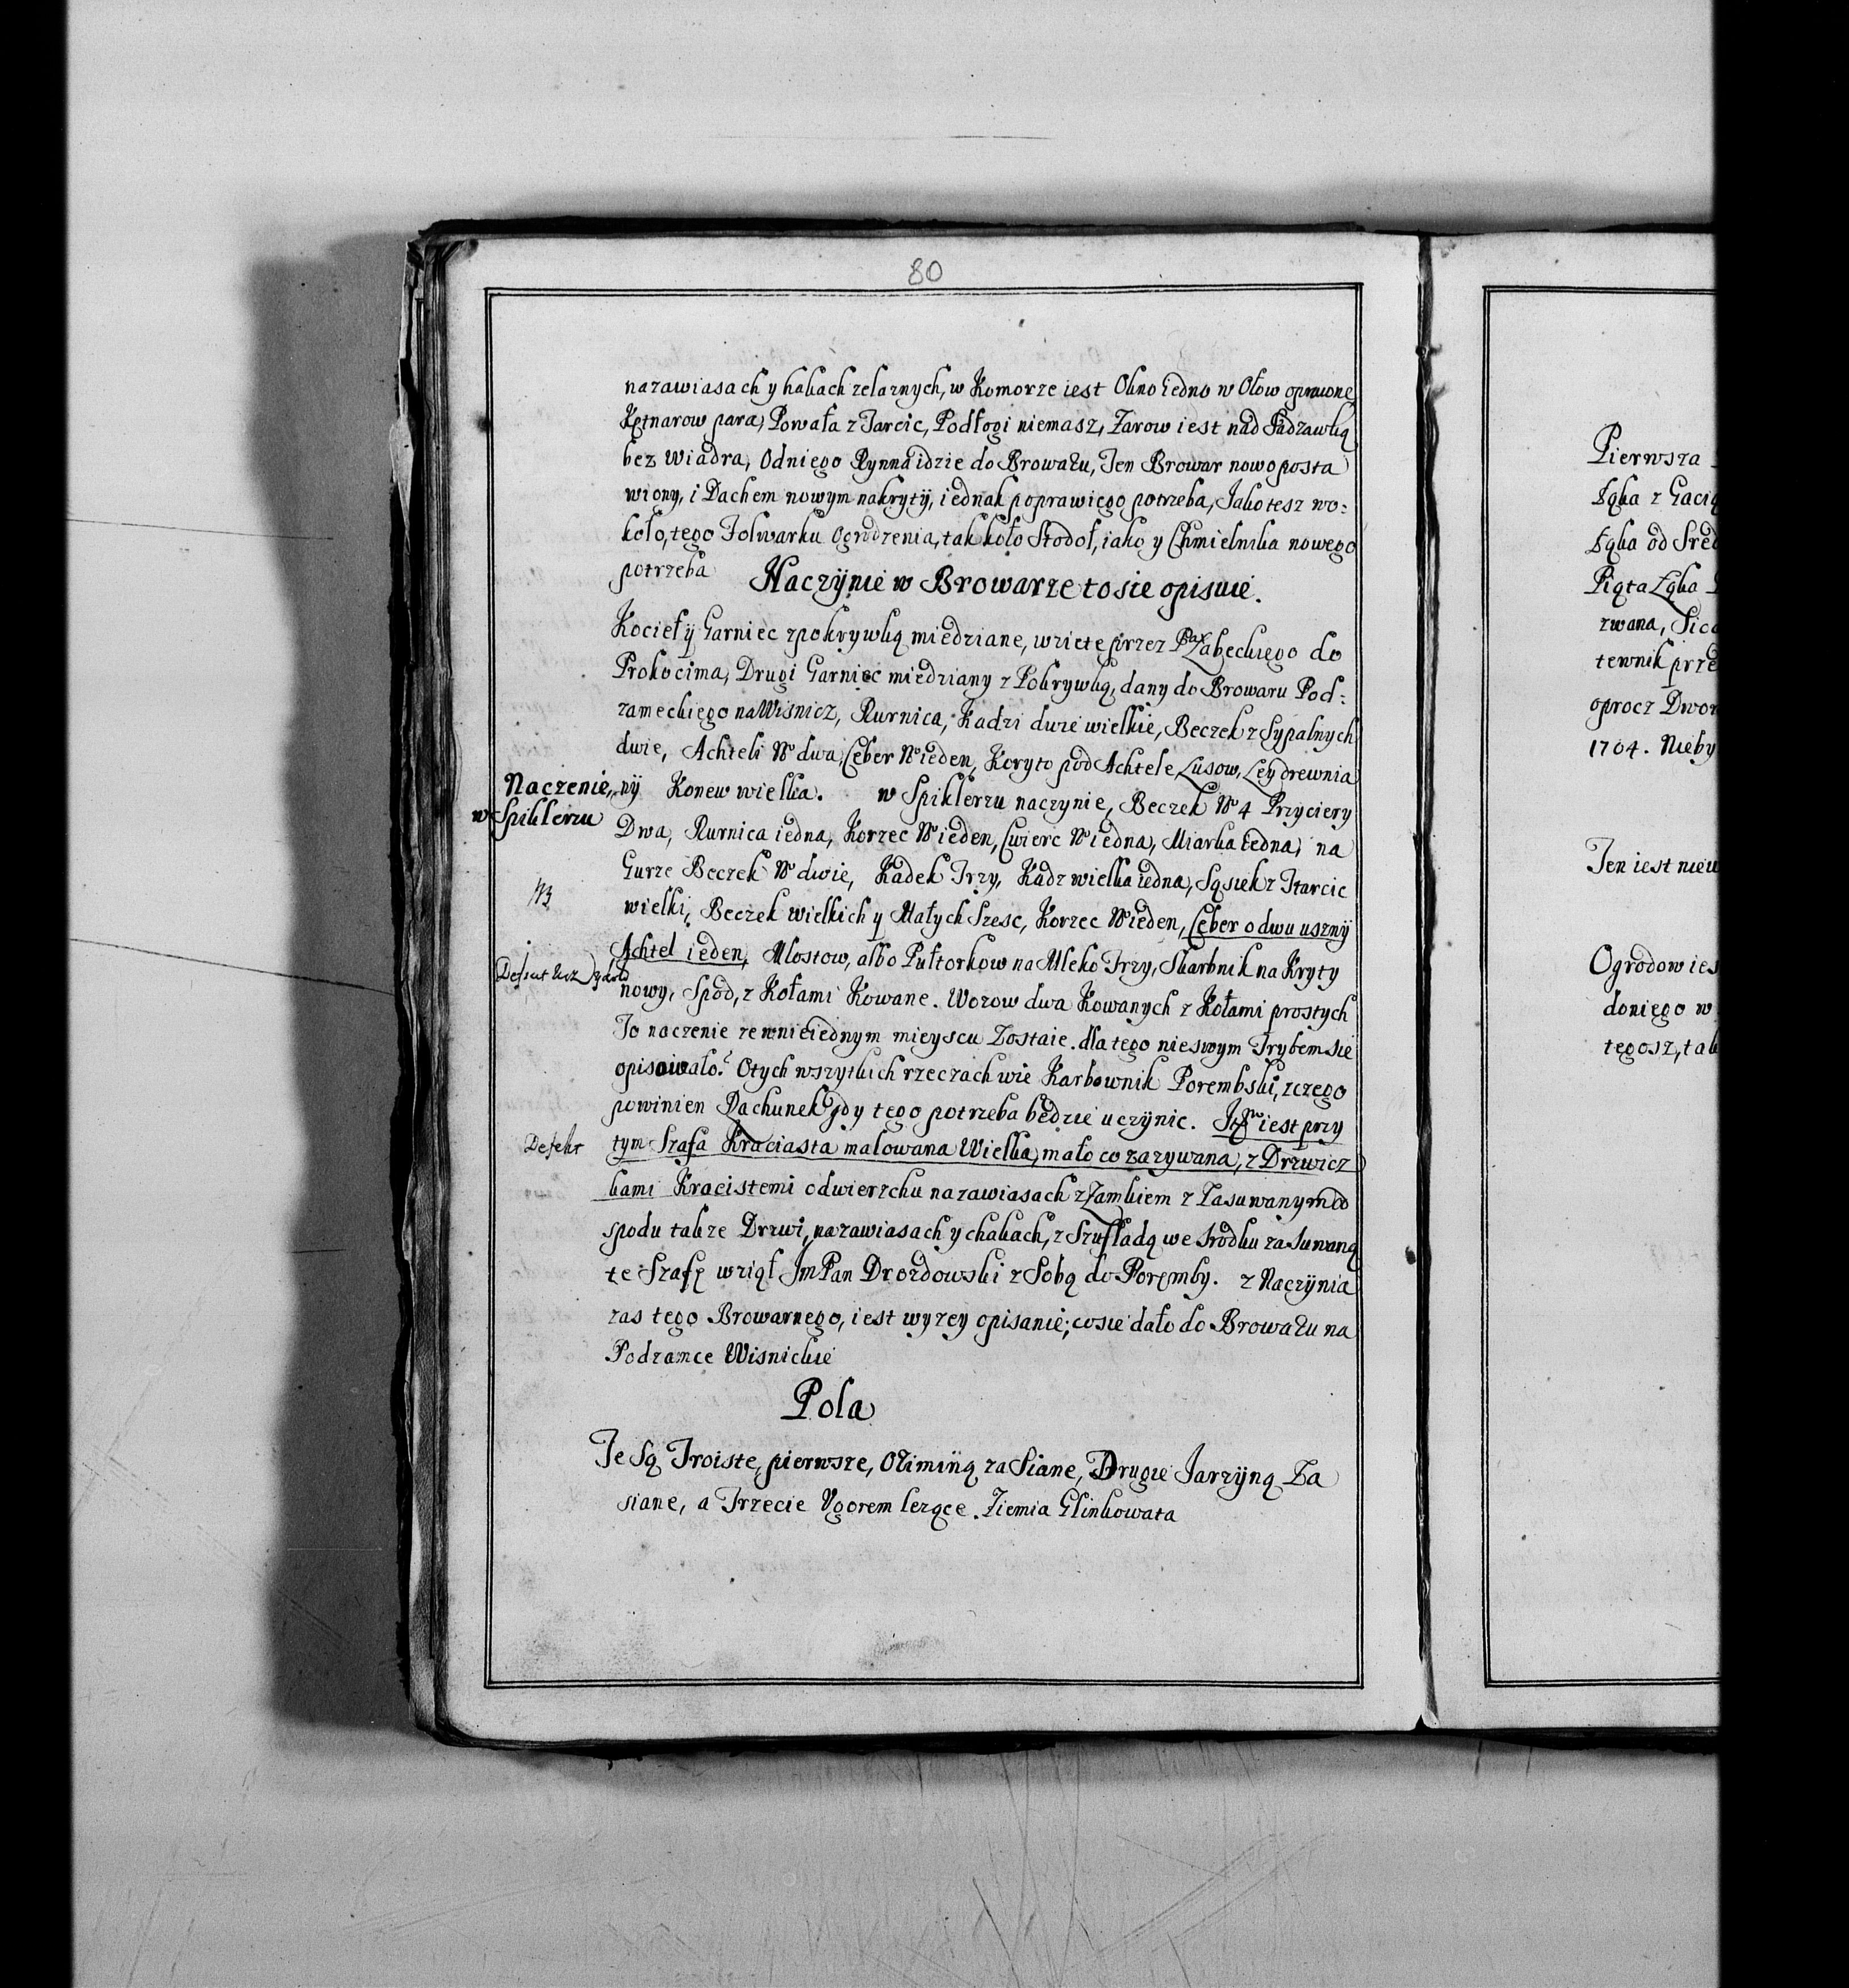 80
nazawiasach y hakach zelaznych, w Komorze iest Okno iedno w Ołow oprawione
Kętnarow para, Powała z Tarcic, Podłogi niemasz, Zarow iest nad Sadzawką
bez Wiadra, Odniego Rynna idzie do Browaru, Ten Browar nowo posta
wiony, i Dachem nowym nakrytÿ, iednak poprawiego potrzeba, Jako tesz wo:
koło, tego Folwarku Ogrodzenia, tak koło Stodoł, iako y Chmielnika nowego
potrzeba
Naczÿnie w Browarze to sie opisuie.
Kocieł ÿ Garniec zpokrywką miedziane, wziete przez Pana Zabeckiego do
Prokocima, Drugi Garniec miedziany z Pokrywką, dany do Browaru Pod:
zameckiego na Wisnicz, Rurnica, Kadzi dwie wielkie, Beczek zSypalnych
dwie, Achteli No dwa, Ceber No ieden, Koryto pod Achtele, Lusow, Ley drewnia
Naczenie nÿ Konew wielka. w Spiklerzu naczynie, Beczek No 4 Przyciery
w Spiklerzu Dwa, Rurnica iedna, Korzec No ieden, Cwierc No iedna, Miarka iedna, na
Gurze Beczek No dwie, Kadek Trzy, Kadz wielka iedna, Sąsiek z Tarcic
wielki, Beczek wielkich y Małych Szesc, Korzec No ieden, Ceber o dwu usznÿ
Achtel ieden, Mlostow, albo Pułtorkow na Mleko Trzy, Skarbnik na Kryty
nowy, Spod, z Kołami Kowane. Wozow dwa Kowanych z Kołami prostych
To naczenie ze wnieiednym mieyscu Zostaie. dla tego nieswym Trybem sie
opisowało. Otych wszytkich rzeczach wie Karbownik Porembski, zczego
powinien Rachunek gdy tego potrzeba bedzie uczÿnic. iest przy
Defekt tym Szafa Kraciasta malowana Wielka, mało co zazywana, z Drzwicz
kami Kracistemi odwierzchu nazawiasach z Zamkiem z Zasuwanym od
spodu takze Drzwi, nazawiasach y chakach, z Szufladą we srodku zasuwaną
te Szafę wziął Jm Pan Drozdowski z Sobą do Poremby. z Naczÿnia
zas tego Browarnego, iest wyzey opisanie; cosie dało do Browaru na
Podzamce Wisnickie
Pola
Te Są Troiste, pierwsze, Oziminą zaSiane, Drugie Jarzÿną Za
siane, a Trzecie Ugorem lezące. Ziemia Glinkowata
Pierwsza
Łąka z Gacią
Łąka od Sred
Piąta Łąka
zwana, Sico
tewnik prze
oprocz Dwor
1704. Nieby
Ten iest niew
Ogrodow ies
doniego w
tegosz, tak